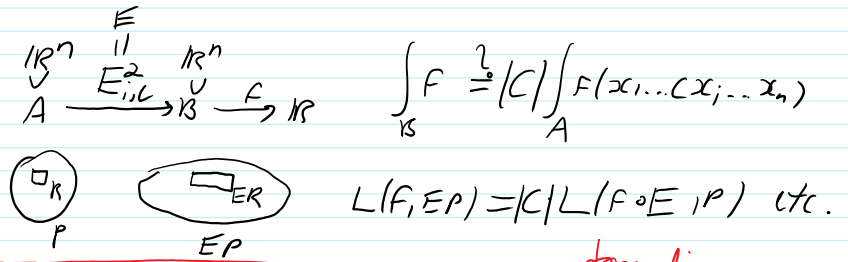 E
||
ℝⁿ E²ᵢ,c ℝⁿ
∪ ∪
A ⟶ B ⟶ ℝ
F
∫_B F ≟ |C| ∫_A F(x₁...Cxᵢ...xₙ)
R ER
P EP
L(F,EP) = |C| L(F∘E,P) etc.